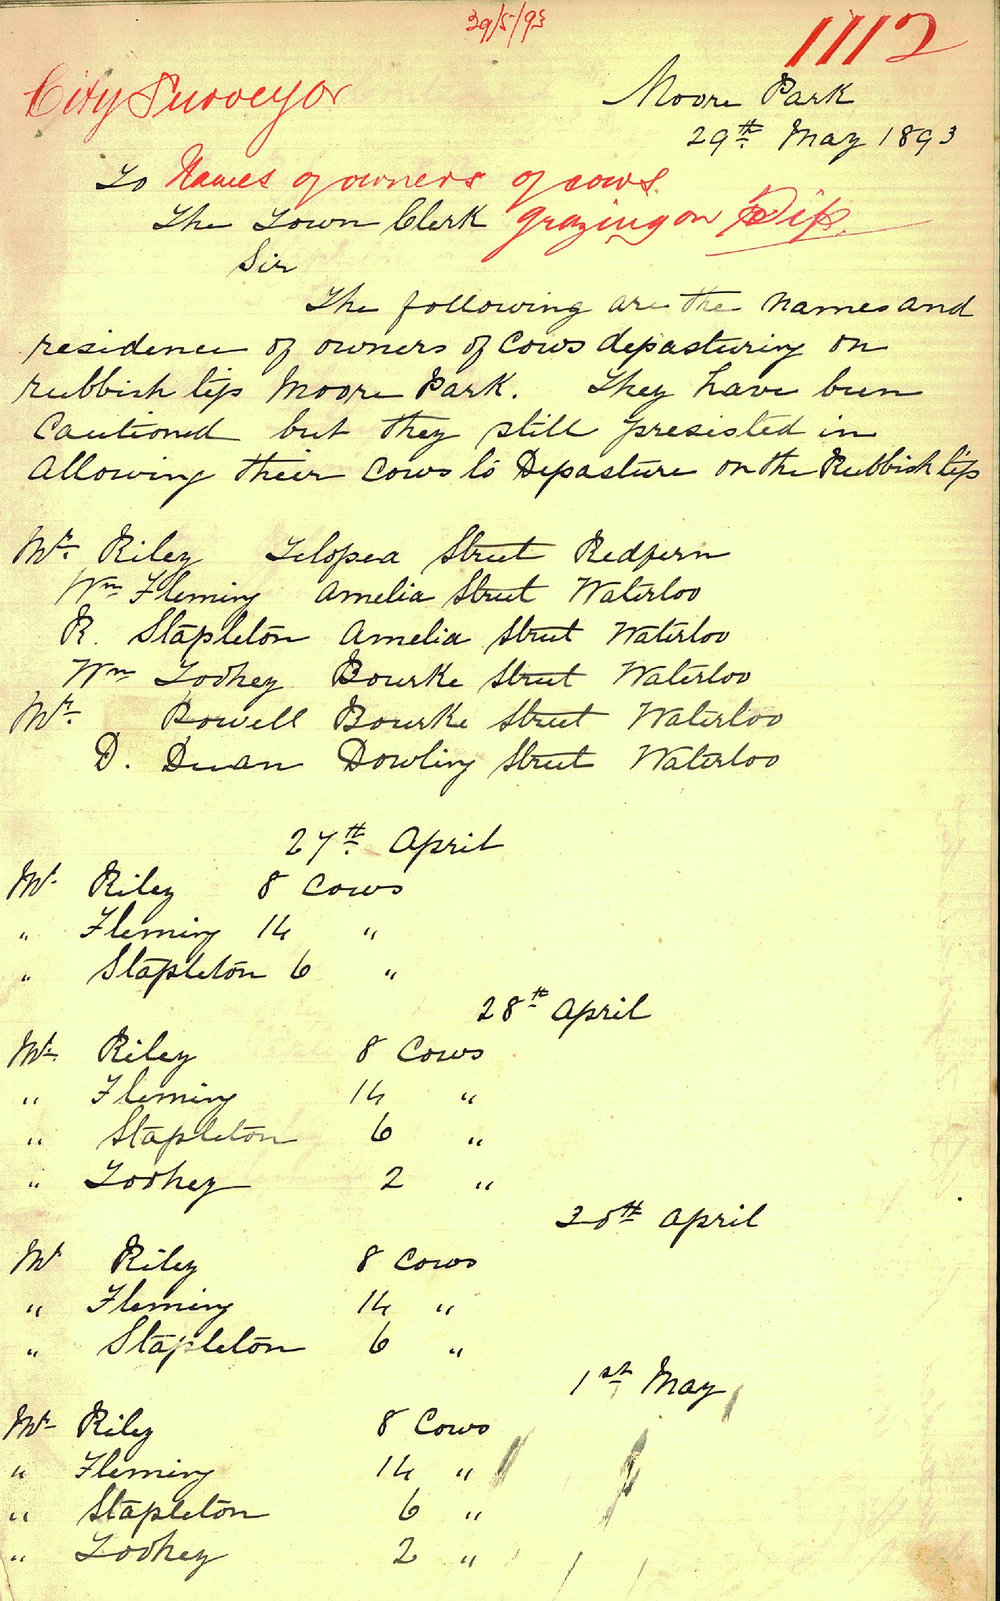 29/5/93
1112
City Surveyor
Moore Park
29th May 1893
To Names of owners of cows
The Town Clerk grazing on Tip.
Sir
The following are the names and
residence of owners of Cows depasturing on
rubbish tip Moore Park. They have been
Cautioned but they still presisted in
allowing their Cows to Depasture on the Rubbish tip
Mr. Riley Telopea Street Redfern
Wm Fleming Amelia Street Waterloo
R. Stapleton Amelia Street Waterloo
Wm Toohey Bourke Street Waterloo
Mr. Bowell Bourke Street Waterloo
D. Dwan Dowling Street Waterloo
27th April
Mr. Riley 8 Cows
" Fleming 14 "
" Stapleton 6 "
28th April
Mr. Riley 8 Cows
" Fleming 14 "
" Stapleton 6 "
" Toohey 2 "
30th April
Mr Riley 8 Cows
" Fleming 14 "
" Stapleton 6 "
1st May
Mr. Riley 8 Cows
" Fleming 14 "
" Stapleton 6 "
" Toohey 2 "